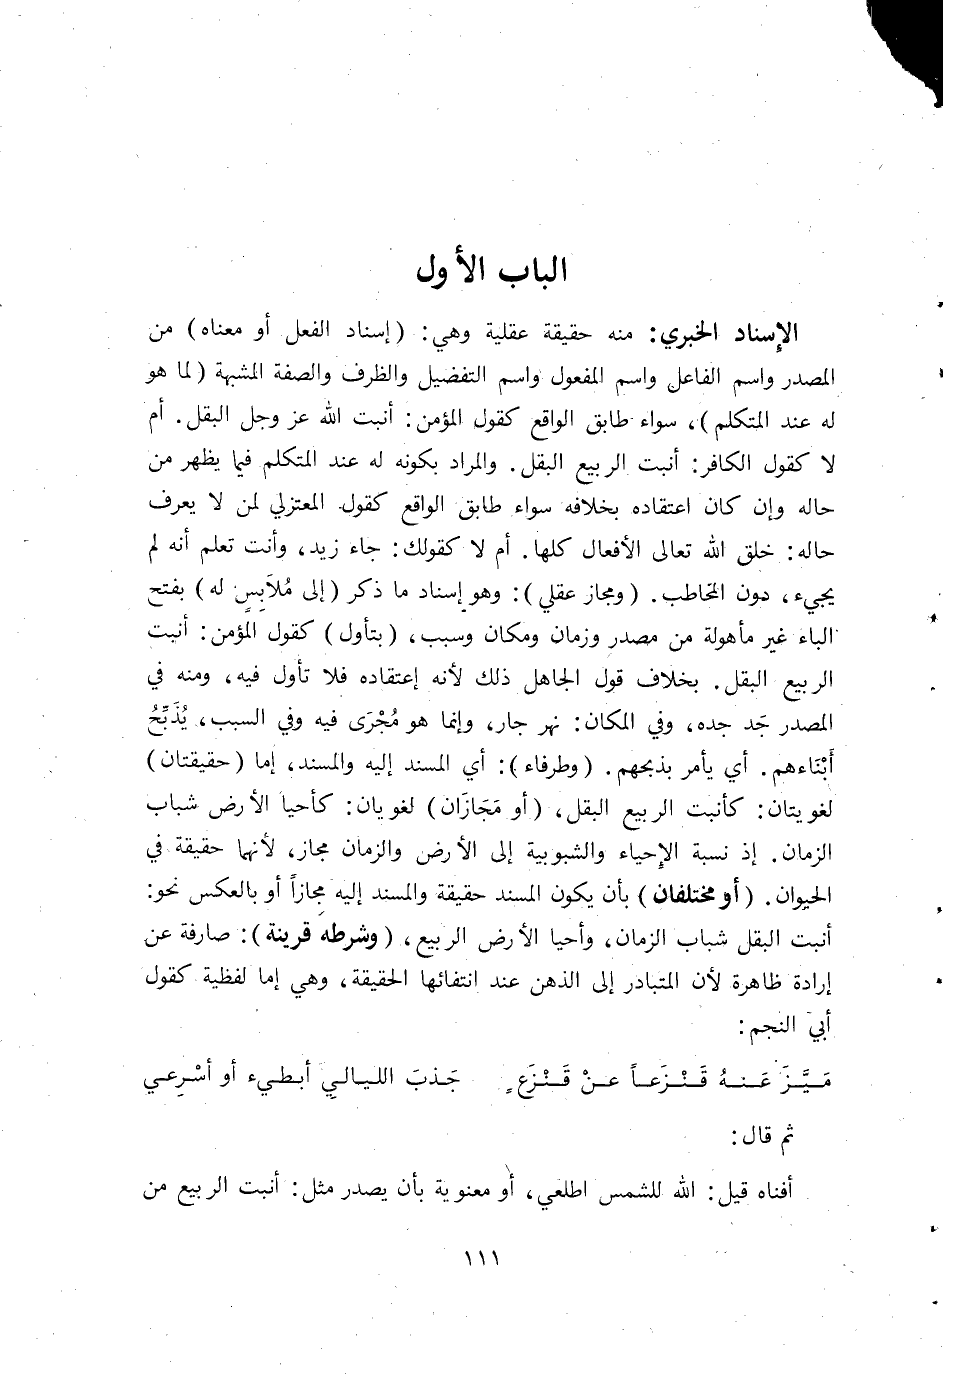 الباب الأول
الإسناد الخبري: منه حقيقة عقلية وهي: (إسناد الفعل أو معناه) من
المصدر واسم الفاعل واسم المفعول واسم التفضيل والظرف والصفة المشبهة (لما هو
له عند المتكلم)، سواء طابق الواقع كقول المؤمن: أنبت الله عز وجل البقل. أم
لا كقول الكافر: أنبت الربيع البقل. والمراد بكونه له عند المتكلم فيما يظهر من
حاله وإن كان اعتقاده بخلافه سواء طابق الواقع كقول المعتزلي لمن لا يعرف
حاله: خلق الله تعالى الأفعال كلها. أم لا كقولك: جاء زيد، وأنت تعلم أنه لم
يجيء، دون المخاطب. (ومجاز عقلي): وهو إسناد ما ذكر (إلى مُلاَبِسٍ له) بفتح
الباء غير مأهولة من مصدر وزمان ومكان وسبب، (بتأول) كقول المؤمن: أنبت
الربيع البقل. بخلاف قول الجاهل ذلك لأنه إعتقاده فلا تأول فيه، ومنه في
المصدر جَد جده، وفي المكان: نهر جار، وإنما هو مُجْرَى فيه وفي السبب، يُذَبِّحُ
أَبْنَاءهم. أي يأمر بذبحهم. (وطرفاء): أي المسند إليه والمسند، إما (حقيقتان)
لغويتان: كأنبت الربيع البقل، (أو مَجَازَان) لغويان: كأحيا الأرض شباب
الزمان. إذ نسبة الإحياء والشبوبية إلى الأرض والزمان مجاز، لأنها حقيقة في
الحيوان. (أو مختلفان) بأن يكون المسند حقيقة والمسند إليه مجازاً أو بالعكس نحو:
أنبت البقل شباب الزمان، وأحيا الأرض الربيع، (وشرطه قرينة): صارفة عن
إرادة ظاهرة لأن المتبادر إلى الذهن عند انتفائها الحقيقة، وهي إما لفظية كقول
أبي النجم:
مَيَّزَ عَنهُ قَنْزَعاً عنْ قَنْزَعٍ جَذبَ الليالي أبطيء أو أسْرعي
ثم قال:
أفناه قيل: الله للشمس اطلعي، أو معنوية بأن يصدر مثل: أنبت الربيع من
١١١